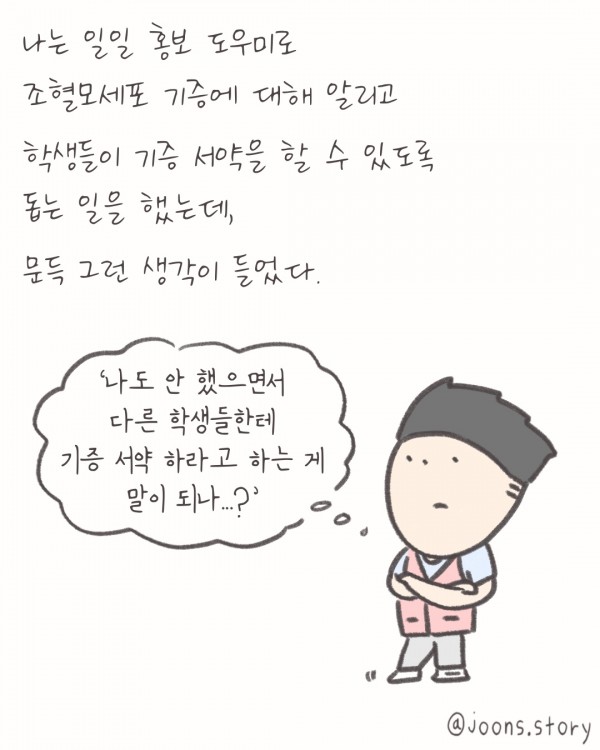 나는 일일 홍보 도우미로
조혈모세포 기증에 대해 알리고
학생들이 기증 서약을 할 수 있도록
돕는 일을 했는데,
문득 그런 생각이 들었다.
'나도 안 했으면서
다른 학생들한테
기증 서약 하라고 하는 게
말이 되나...?'
@joons.story